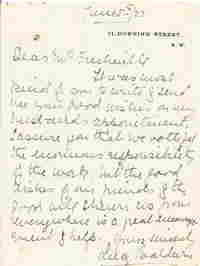 June 5/23
11, DOWNING STREET,
S.W.
Dear Mrs
It was most
kind of you to write & send
me your good wishes on my
husband's appointment.
I assure you that we both feel
the enormous responsibility
of the work, but the good
wishes of our friends & the
good will shewn us from
everywhere is a real encourage
ment & help. Yours sincerely
Lucy Baldwin